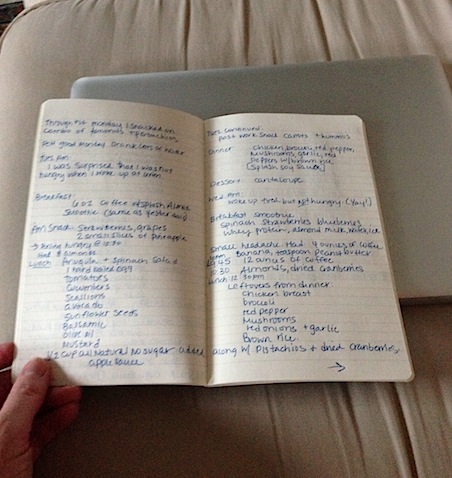 Through out monday I snacked on
carrots + tomatoes + pistachios
Felt good monday. Drank tons of water
Tues Am:
I was surprised that I was not
hungry when I woke up at
Breakfast:
6 oz coffee w/splash Almond
Smoothie (same as yesterday)
Am Snack: Strawberries, grapes
2 small slices of pineapple
→ hungry @ 10:30
Had 8 almonds
Lunch Arugula + spinach salad
1 hard boiled egg
Tomatoes
Cucumbers
Scallions
avocado
sunflower seeds
Balsamic
olive oil
Mustard
1/2 cup all Natural No sugar added
apple sauce
Tues continued:
Post work snack carrots + hummus
Dinner chicken, brocoli, red pepper,
mushrooms, garlic, red
peppers w/ brown rice
[splash soy sauce]
Dessert: cantaloupe
Wed Am:
woke up tired but not hungry. (Yay!)
Breakfast smoothie
spinach strawberries blueberries
whey protein, almond milk, water, ice
small headache Had 4 ounces of coffee
banana, teaspoon peanut butter
9:45 12 ounces of coffee
10:30 Almonds, dried cranberries
Lunch: 12:30pm
Leftovers from dinner:
chicken breast
brocoli
red pepper
Mushrooms
red onions + garlic
Brown rice.
along w/ Pistachios + dried cranberries.
→